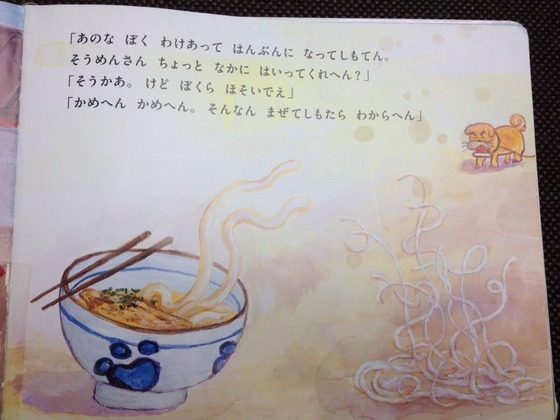 「あのな ぼく わけあって はんぶんに なってしもてん。
そうめんさん ちょっと なかに はいってくれへん？」
「そうかあ。 けど ぼくら ほそいでえ」
「かめへん かめへん。 そんなん まぜてしもたら わからへん」